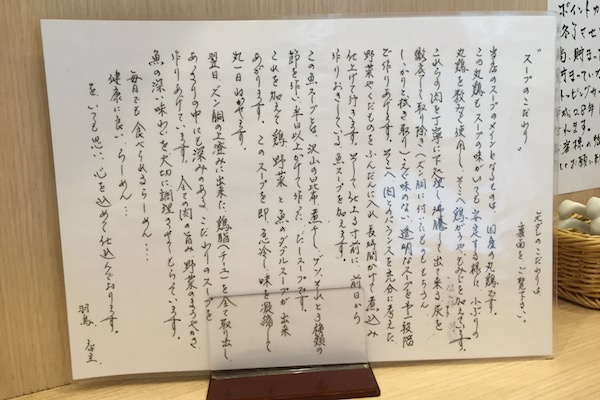 〝スープのこだわり〟
元ダレのこだわりは
裏面をご覧下さい。
当店のスープのメインとなるものは、国産の丸鶏です。
この丸鶏もスープの味がいつでも安定する様に、小ぶりの
丸鶏を数羽使用し、そこへ鶏がらやもみじを加えています。
これらの肉を丁寧に下処理し沸騰して出て来る灰を
徹底して取り除き(ズン胴に付いたものももちろん
しっかりと拭き取り)えぐ味のない透明なスープを第一段階
で作りあげます。そこへ肉とのバランスを充分に考えた
野菜やくだものをふんだんに入れ長時間かけて煮込み
仕上げて行きます。そして仕上る寸前に、前日から
作りおきしている魚スープを加えます。
この魚スープとは、沢山の昆布、煮干し、ゲソ、それと3種類の
節を使い半日以上かけて作った、だしスープです。
これを加えて鶏、野菜と魚のダブルスープが出来
あがります。このスープを即、急冷し味を凝縮して
丸一日ねかせます。
翌日、ズン胴の上澄みに出来た鶏脂(チー油)を全て取り出し、
あっさりの中にも深みのある、こだわりのスープを
作りあげています。全ての肉の旨み、野菜のまろやかさ
魚の深い味わいを大切に調理させてもらっています。
毎日でも食べられるらーめん…
健康に良いらーめん…
をいつも思い、心を込めて仕込んでおります。
羽鳥 店主
ポイントカ